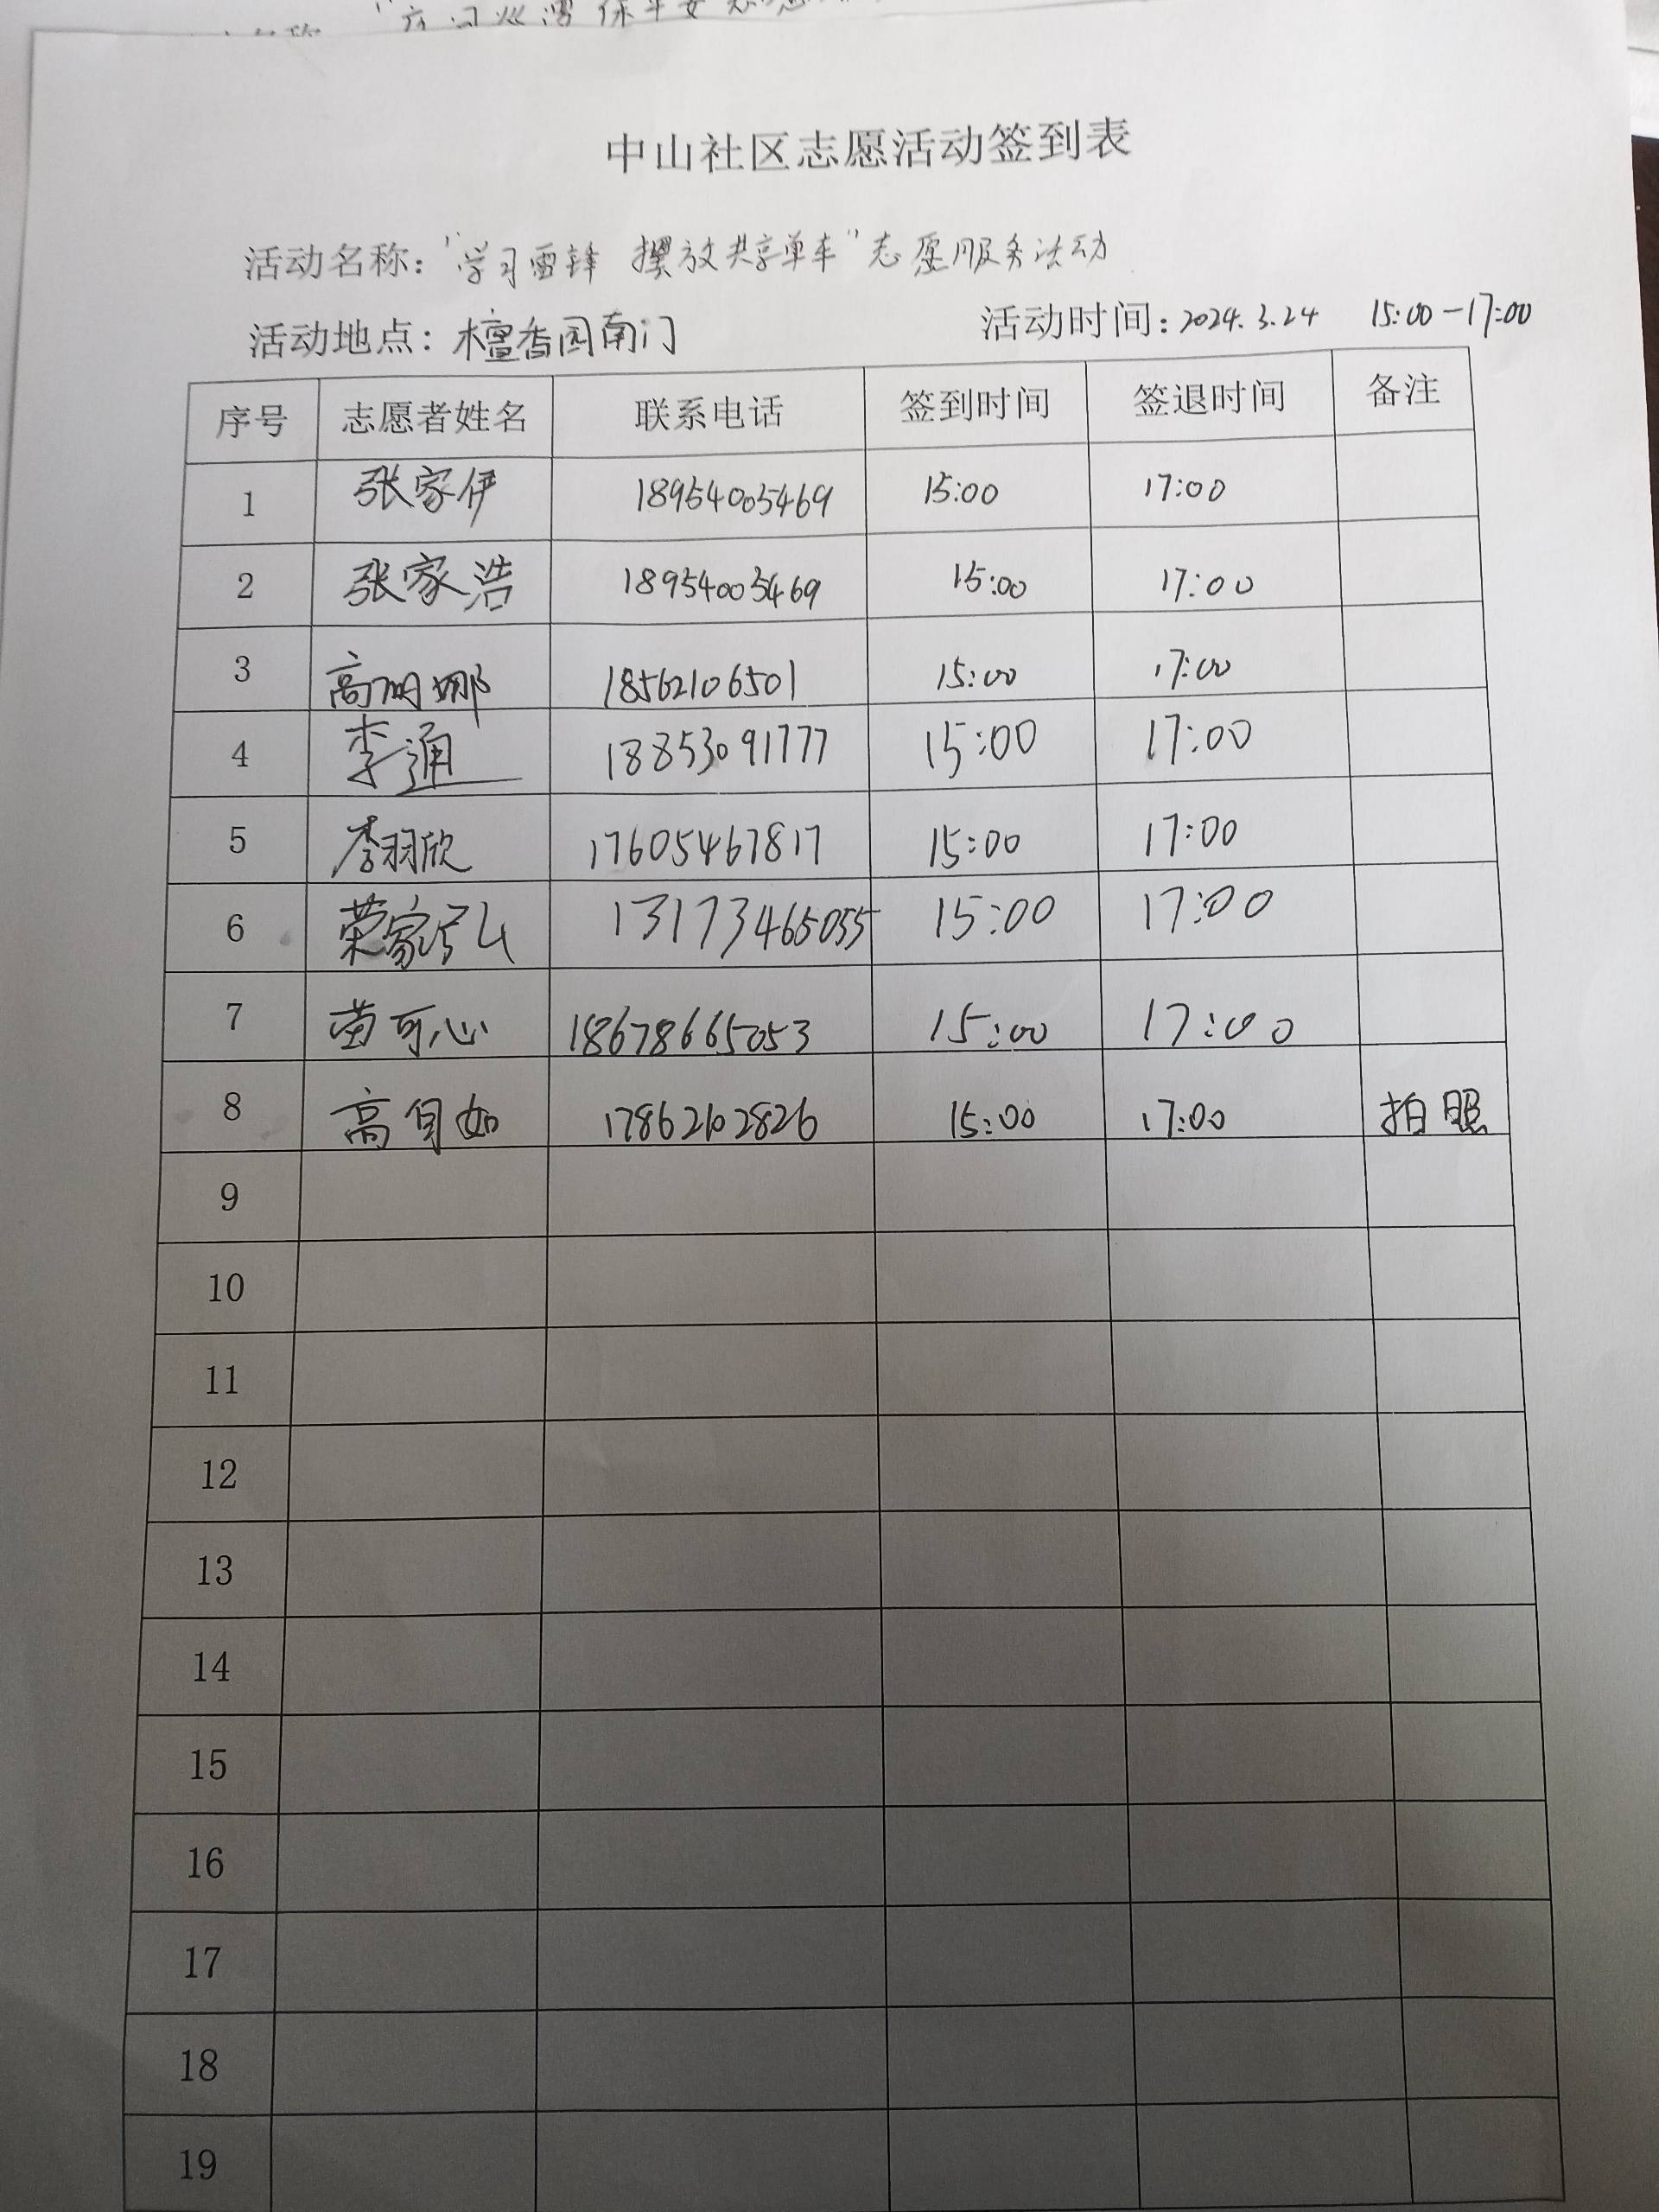 中山社区志愿活动签到表
活动名称："学习雷锋 摆放共享单车"志愿服务活动
活动地点：檀香园南门 活动时间：2024.3.24 15:00-17:00
序号 志愿者姓名 联系电话 签到时间 签退时间 备注
1 张家伊 18954005469 15:00 17:00
2 张家浩 18954005469 15:00 17:00
3 高明娜 18562106501 15:00 17:00
4 李通 18853091777 15:00 17:00
5 李羽欣 17605467817 15:00 17:00
6 荣家弘 13173465055 15:00 17:00
7 苗可心 18678665053 15:00 17:00
8 高自如 17862102826 15:00 17:00 拍照
9
10
11
12
13
14
15
16
17
18
19